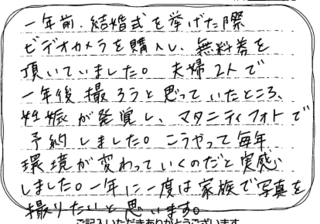 一年前、結婚式を挙げた際
ビデオカメラを購入し、無料券を
頂いていました。夫婦2人で
一年後撮ろうと思っていたところ、
妊娠が発覚し、マタニティフォトで
予約しました。こうやって毎年
環境が変わっていくのだと実感
しました。一年に一度は家族で写真を
撮りたいと思います。
ご記入いただきありがとうございます